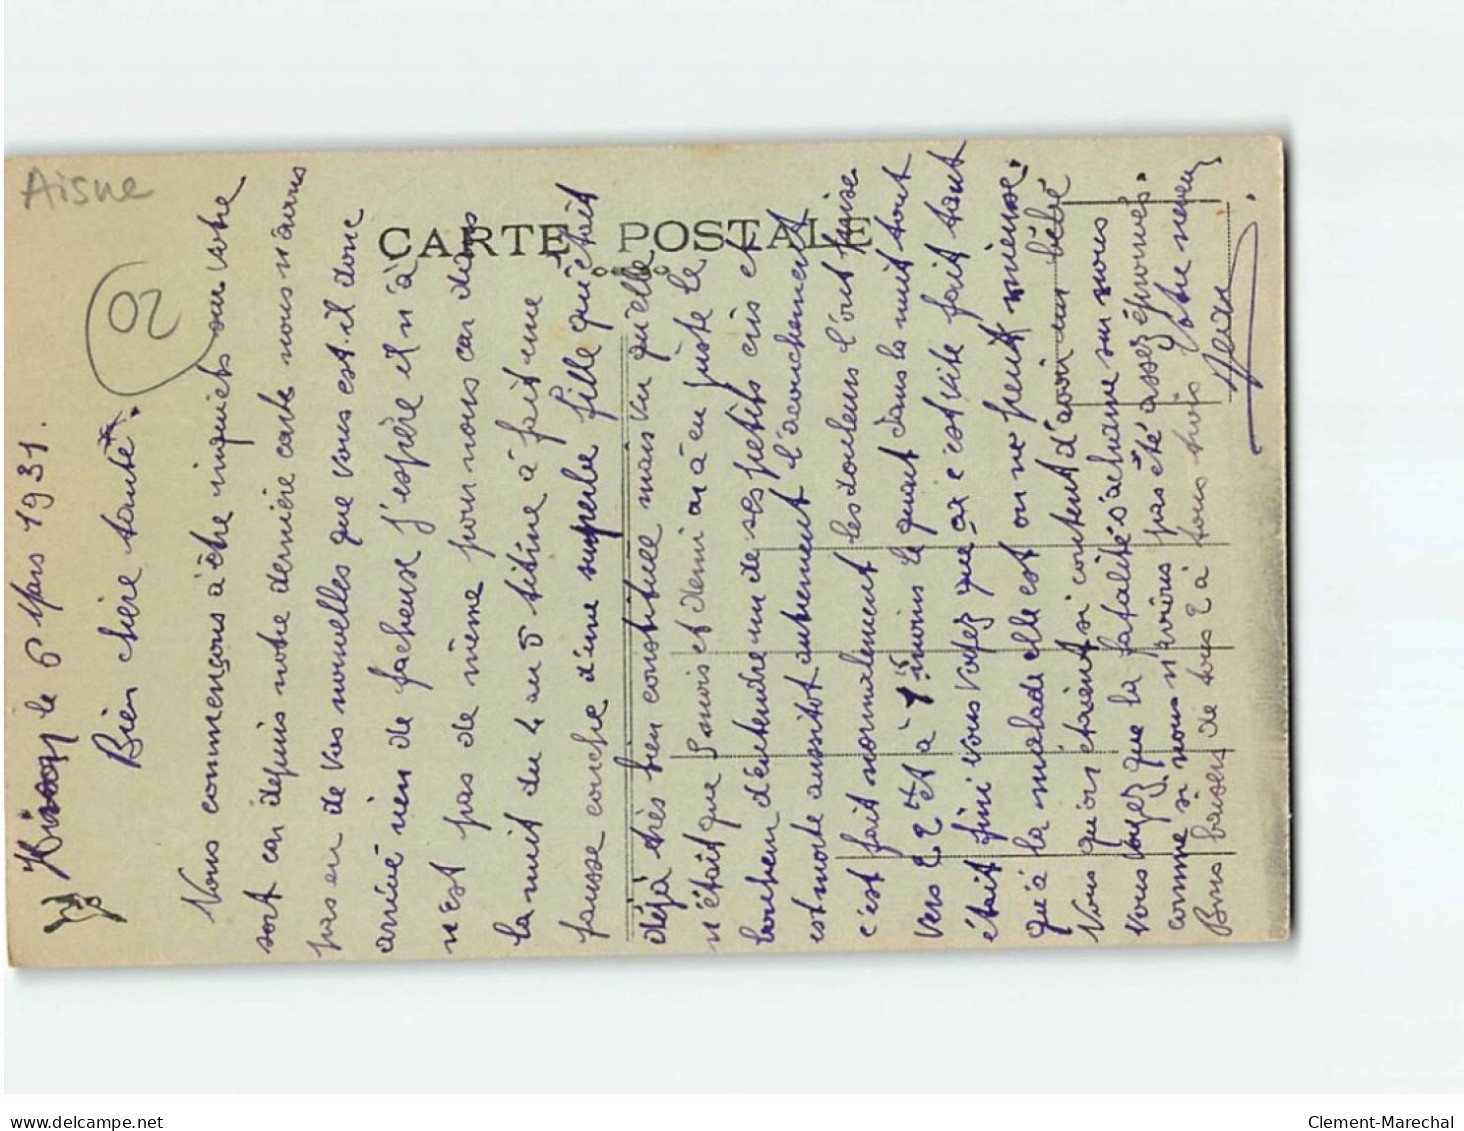 Aisne
02
CARTE POSTALE
Hirson le 6 Mars 1931.
Bien chère tante.
Nous commençons à être inquiets sur votre
sort car depuis notre dernière carte nous n'avons
pas eu de vos nouvelles que vous est-il donc
arrivé rien de facheuse j'espère il n'à
n'est pas de même pour nous car dans
la nuit du 4 au 5 titine à fait une
fausse couche d'une superbe fille qu'était
déjà très bien constituée mais vu qu'elle
n'était que 6 mois et demi on à eu juste le
bonheur d'entendre un de ses petits cris et
est morte aussitot autrement l'acouchement
c'est fait normalement les douleurs l'ont prise
vers 2 et à moins le quart dans la nuit tout
était fini vous voyez que ça c'est vite fait tant
qu'à la malade elle est on ne peut mieux.
Nous qu'ors étaient si content d'avoir un bébé
vous voyez que la fatalité s'acharne sur nous
comme si nous n'avions pas été assez éprouvés.
Bons baisers de tous 2 à tous trois Votre neveu